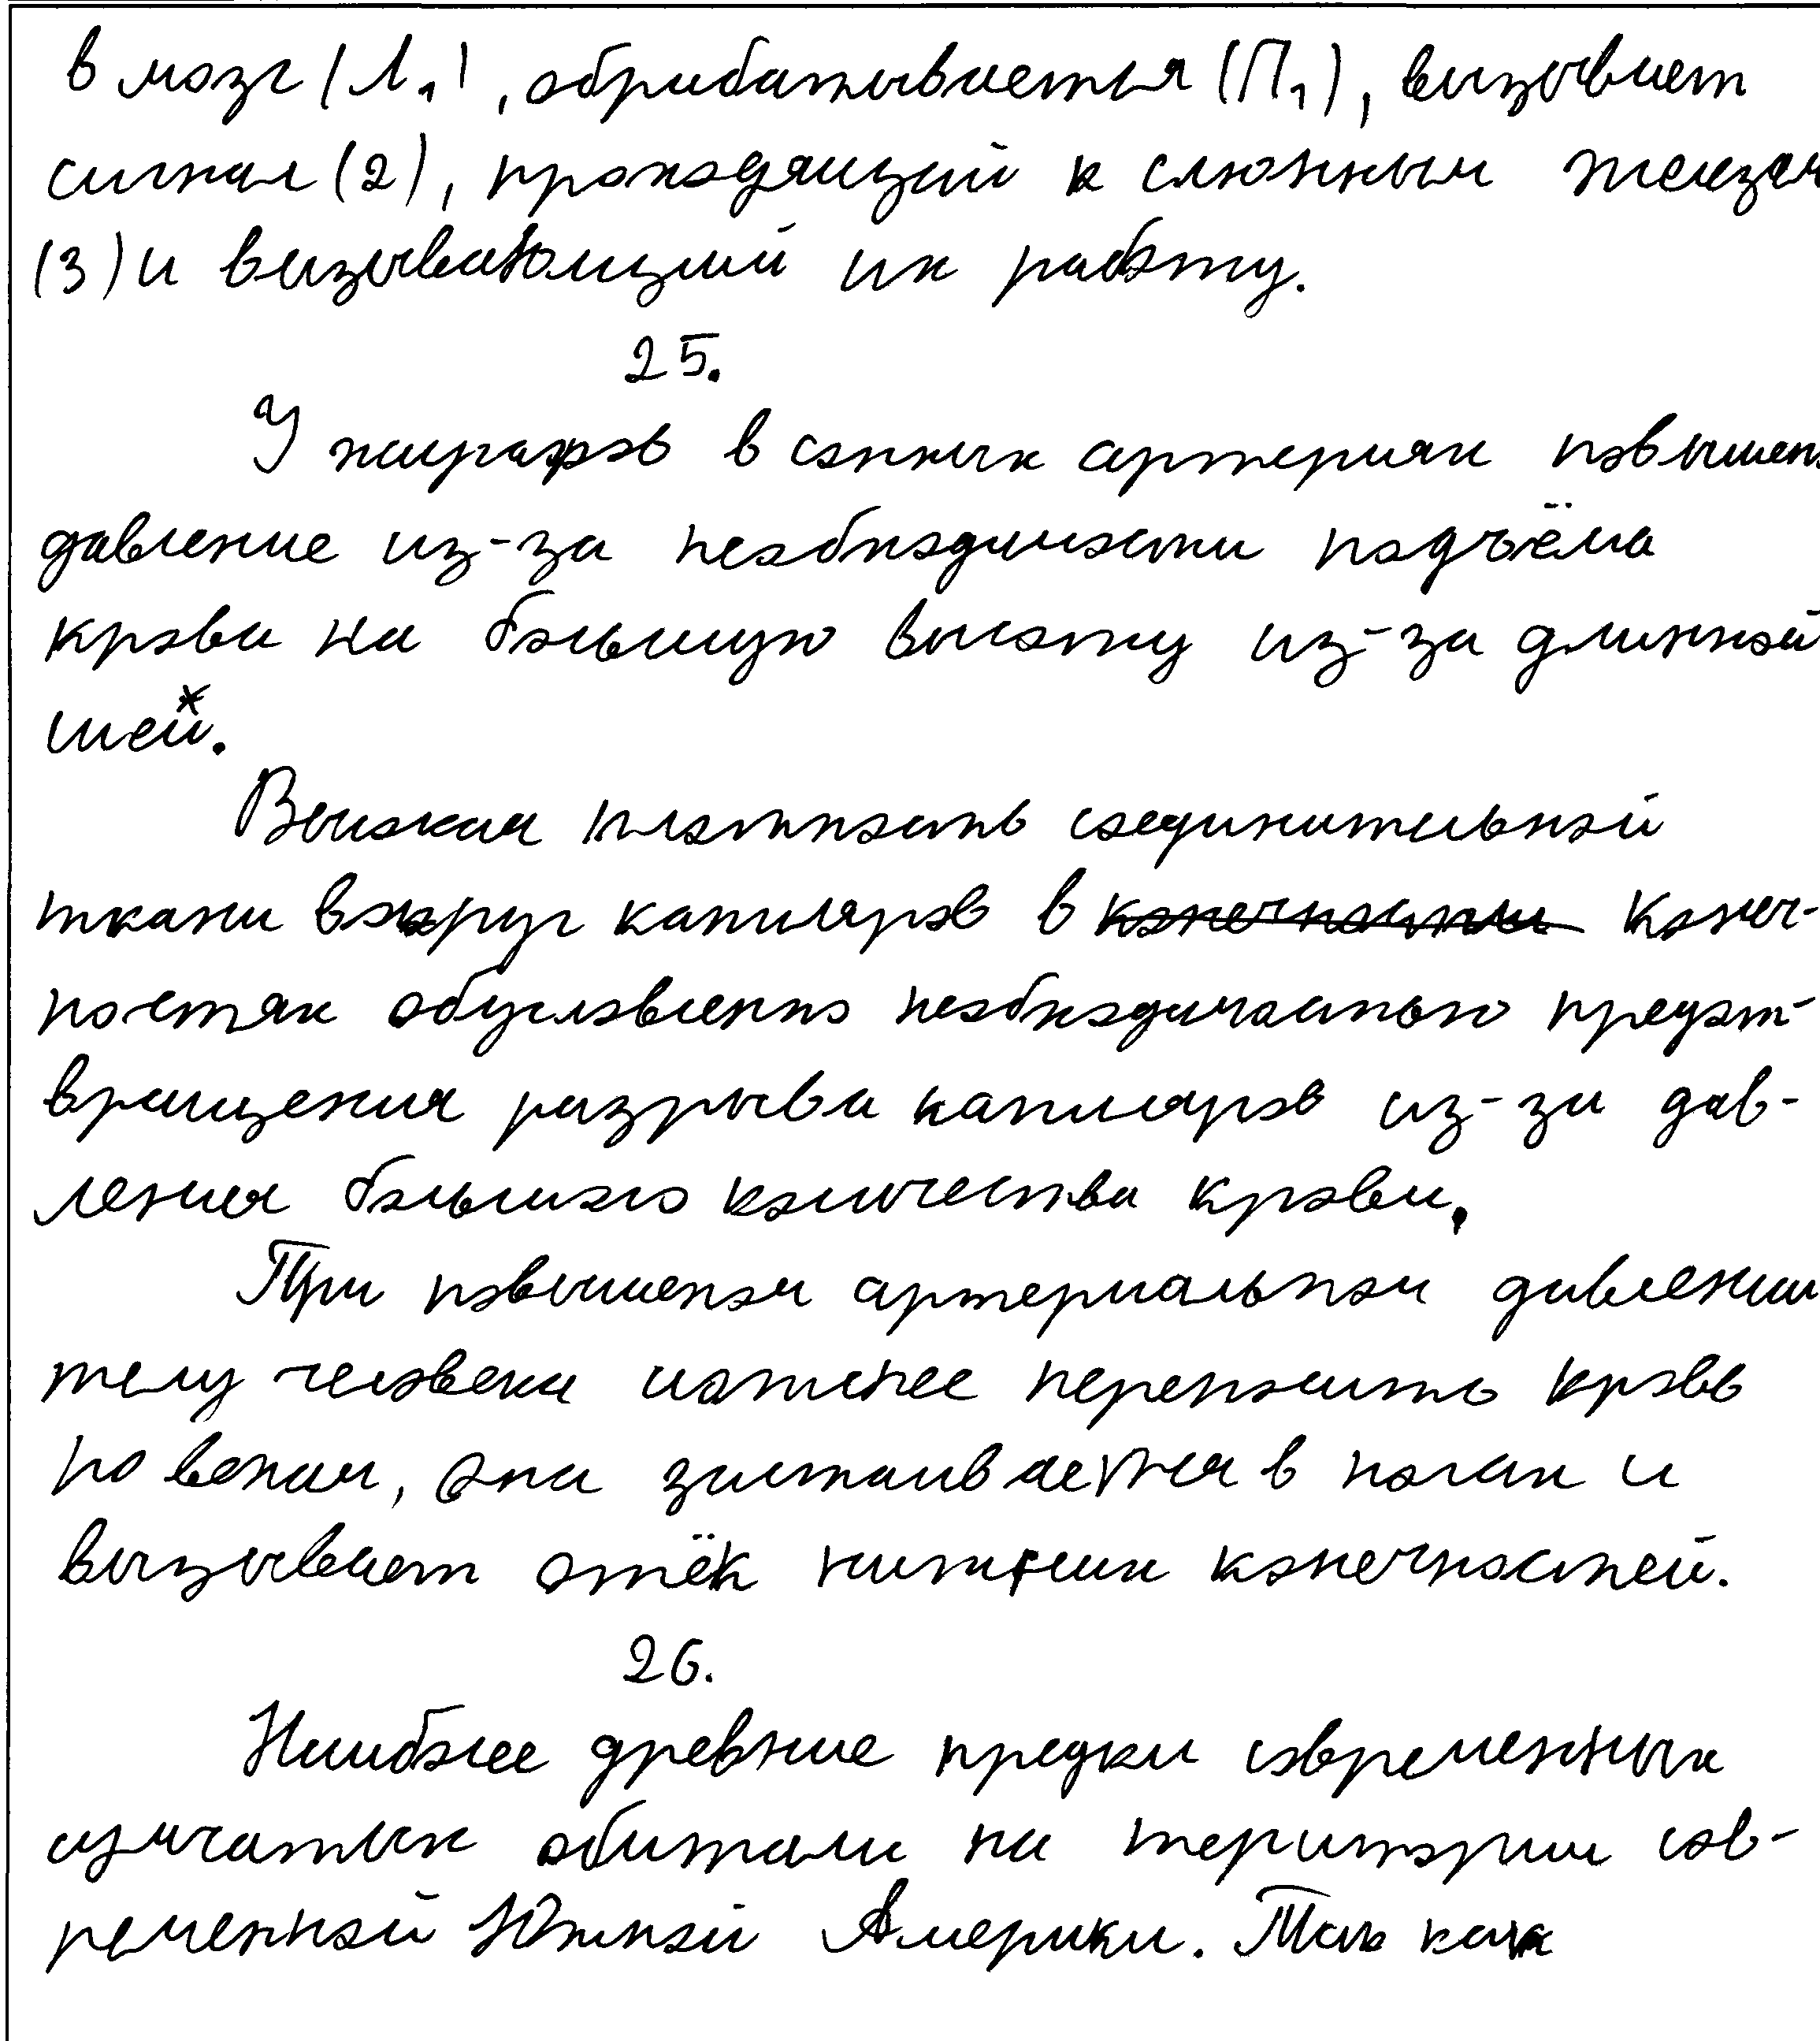 в мозг (Л₁), обрабатывается (П₁), вызывает
сигнал (2), проходящий к слюнным железам
(3) и вызывающий их работу.
25.
У жирафов в сонных артериях повышено
давление из-за необходимости подъёма
крови на большую высоту из-за длинной
шеи.
Высокая плотность соединительной
ткани вокруг капиляров в конечности конеч-
ностях обусловлено необходимостью предот-
вращения разрыва капиляров из-за дав-
ления большого количества крови.
При повышеном артериальном давлении
телу человека переносить кровь
по венам, она застаивается в ногах и
вызывает отёк нижних конечностей.
26.
Наиболее древние предки современных
сумчатых обитали на територии сов-
ременной Южной Америки. Так как